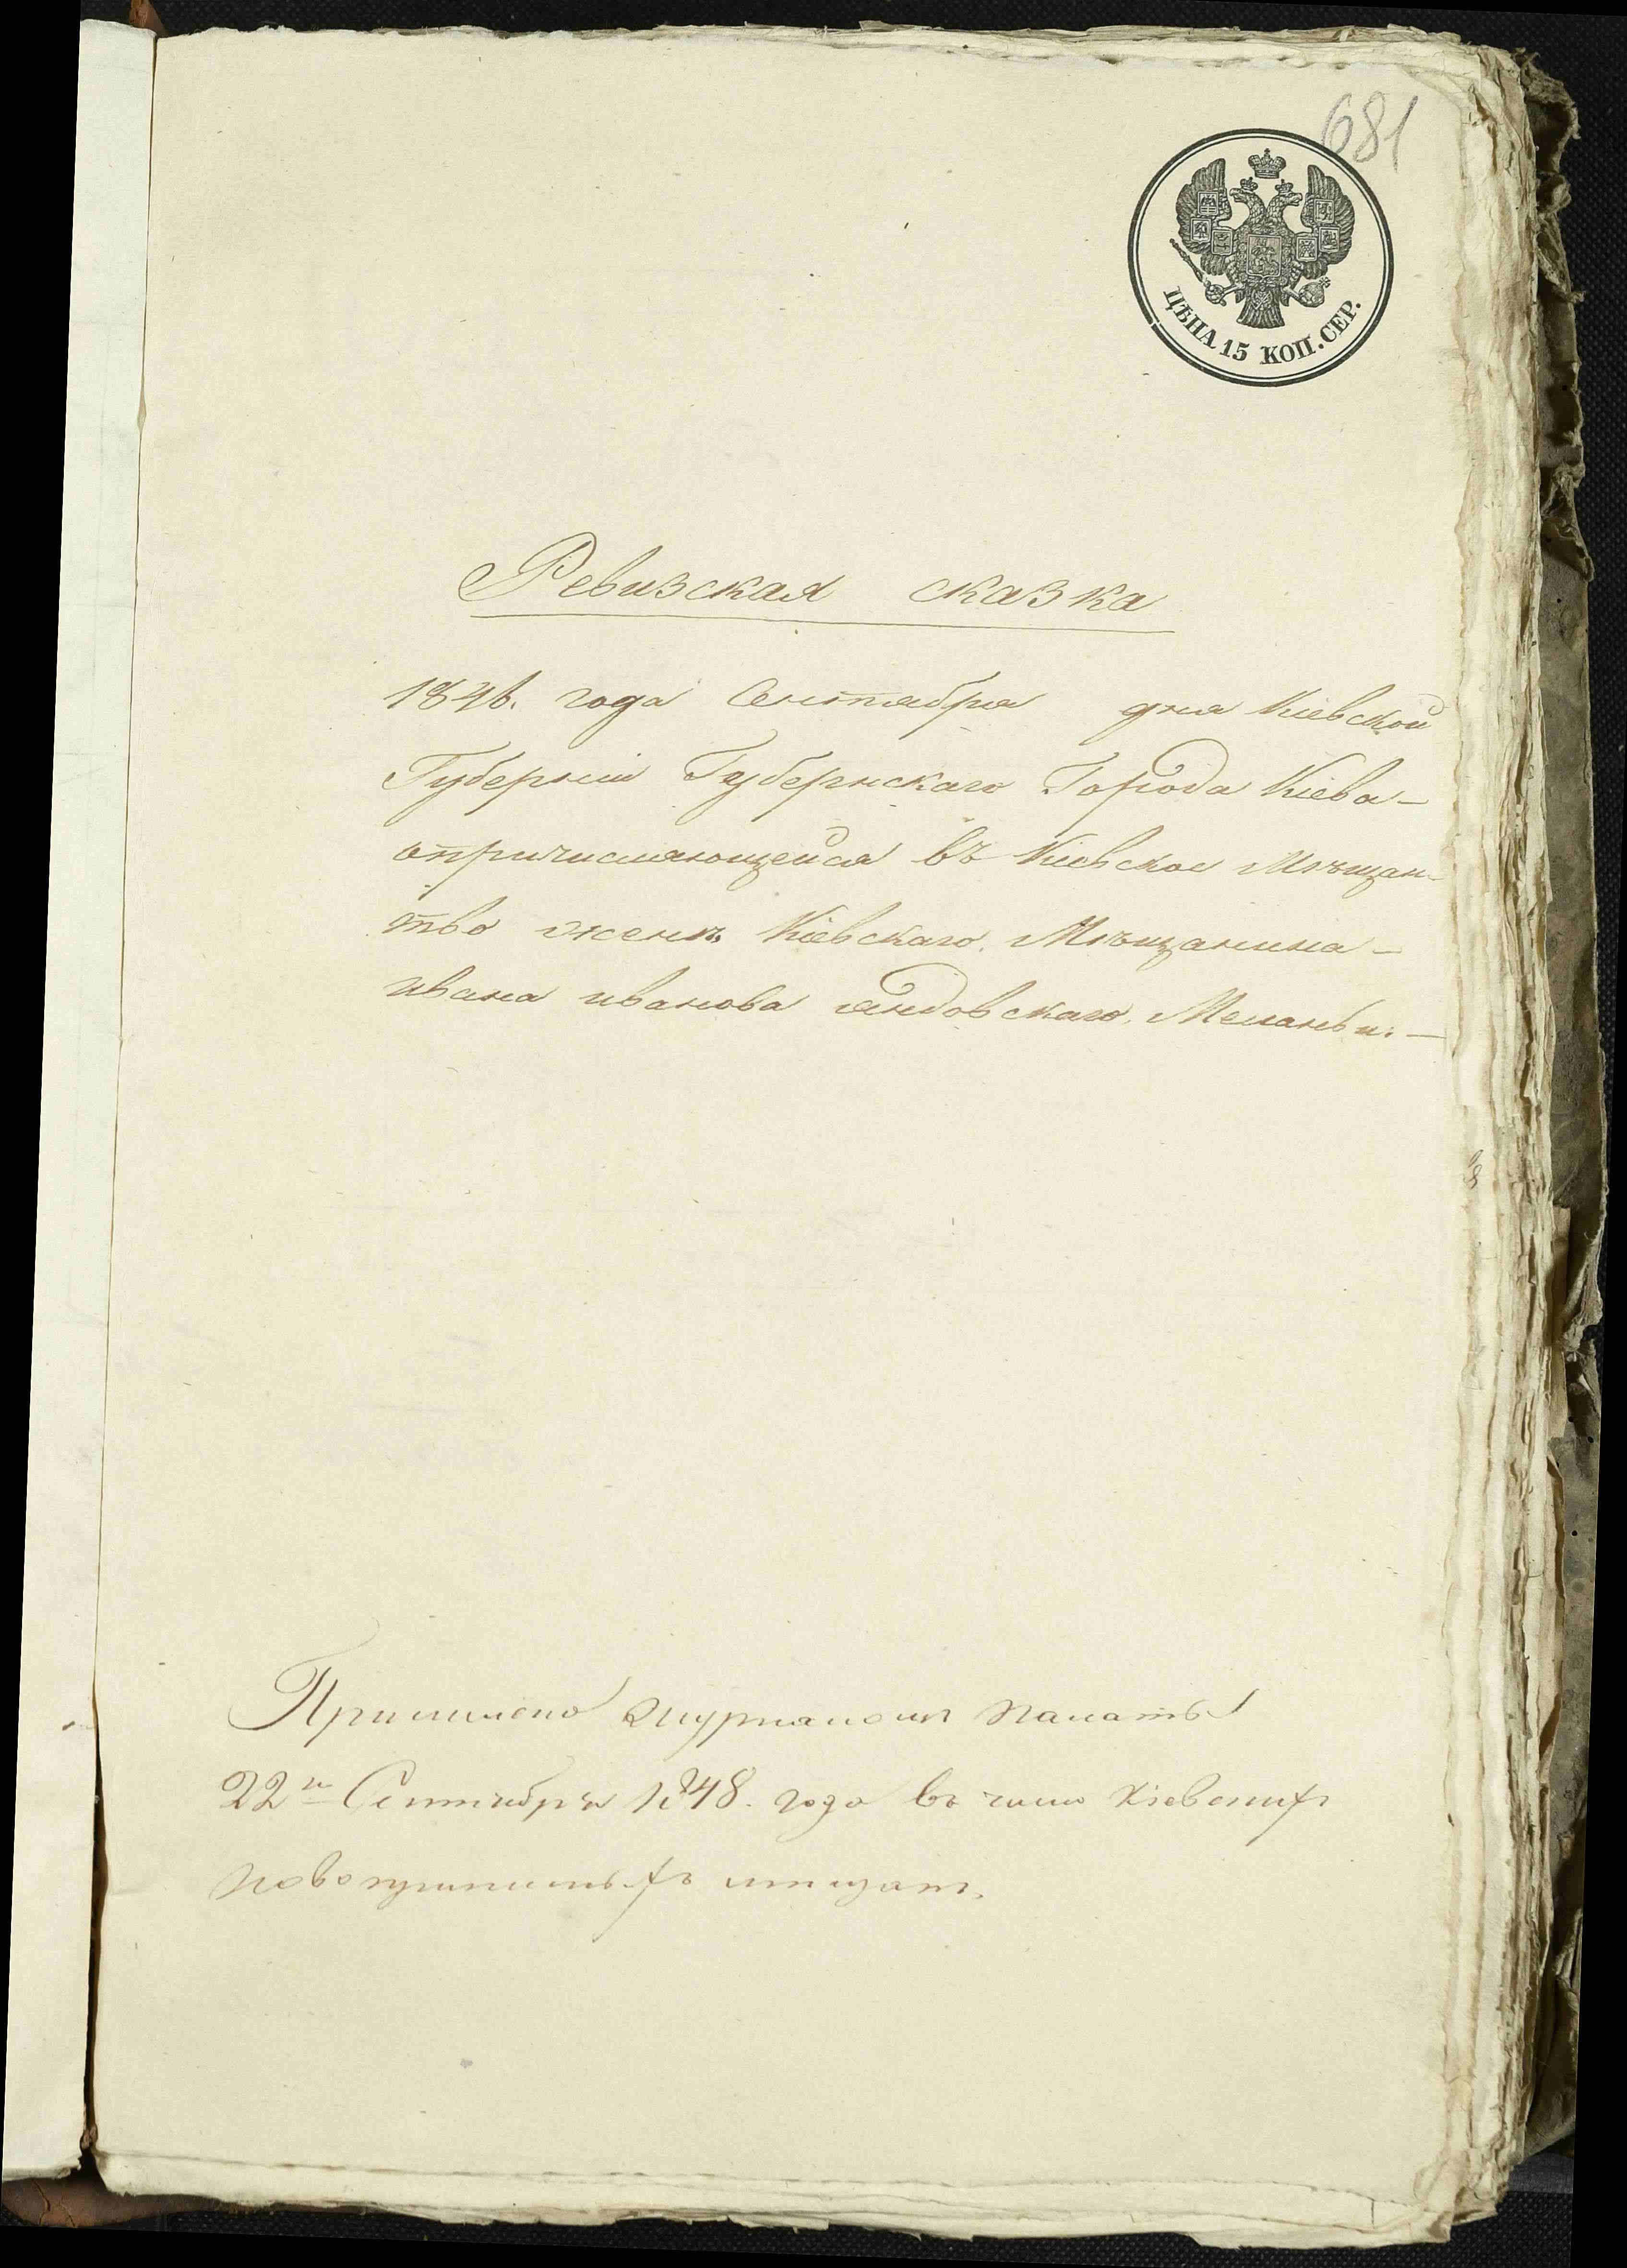 681
ЦѢНА 15 КОП. СЕР.
Ревизская сказка
1846. года Сентября дня Кіевской
Губерніи Губернскаго Города Кіева –
опричисляющейся въ Кіевское Мѣщан-
тво женѣ Кіевскаго Мѣщанина –
ивана иванова Меланьи. –
Причислено журналомъ палаты
22го Сентября 1848. года въ число Кіевскихъ
мѣщанъ.